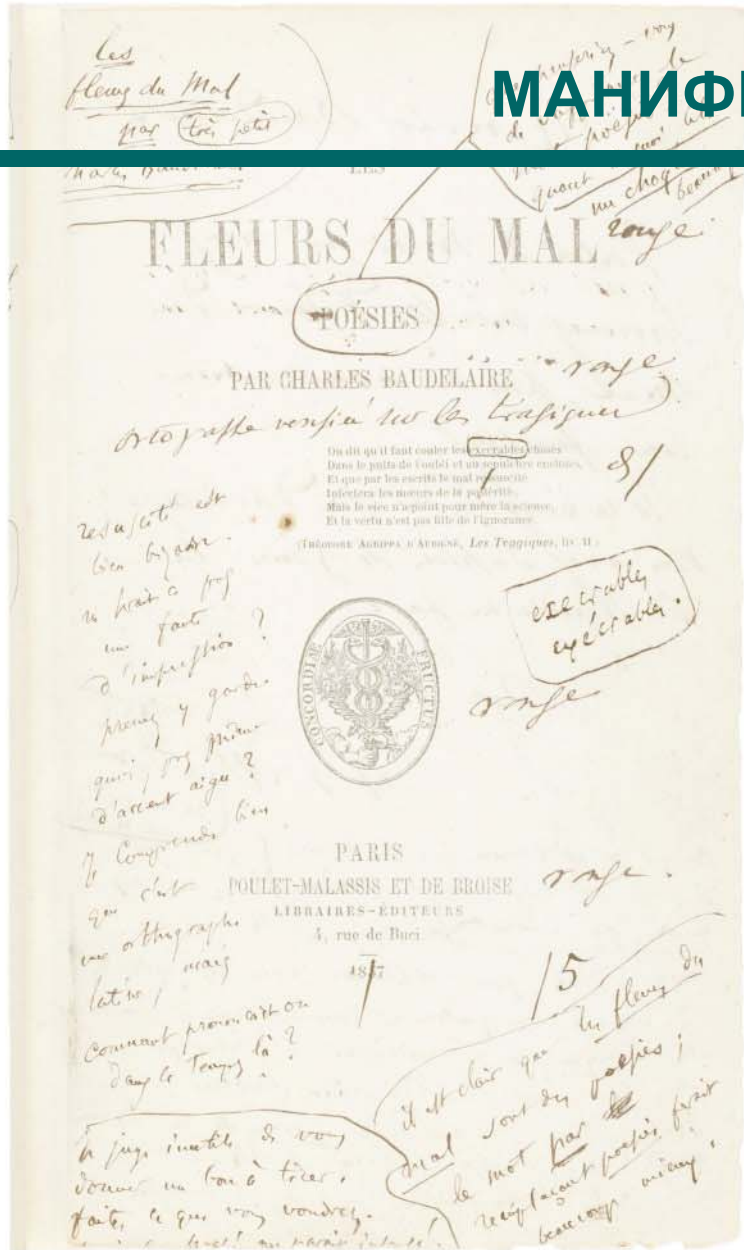 МАНИФ
les
fleurs du Mal
par très petit
Charles
LES
FLEURS DU MAL
rouge.
POÉSIES
PAR CHARLES BAUDELAIRE
rouge
ortographe sur les tragiques
On dit qu'il faut couler les execrables choses
Dans le puits de l'oubli et au sepulchre encloses,
Et que par les escrits le mal resuscité
Infectera les mœurs de la postérité;
Mais le vice n'a point pour mère la science,
Et la vertu n'est pas fille de l'ignorance.
(THÉODORE AGRIPPA D'AUBIGNÉ, Les Tragiques, liv. II.)
8/
resuscité est
bien bizarre.
ne serait ce pas
une faute
d'impression ?
prenez y garde.
quoi, pas même
d'accent aigu ?
Je comprends bien
que c'est
une orthographe
latine, mais
comment prononçait on
dans ce temps là ?
execrables
exécrables.
CONCORDIÆ FRUCTUS
rouge
PARIS
POULET-MALASSIS ET DE BROISE
rouge.
LIBRAIRES-ÉDITEURS
4, rue de Buci.
1857
/5
il est clair que les fleurs du
mal sont des poésies ;
le mot par
remplaçant poésies ferait
beaucoup mieux.
Je juge inutile de vous
donner un bon à tirer.
faites ce que vous voudrez.